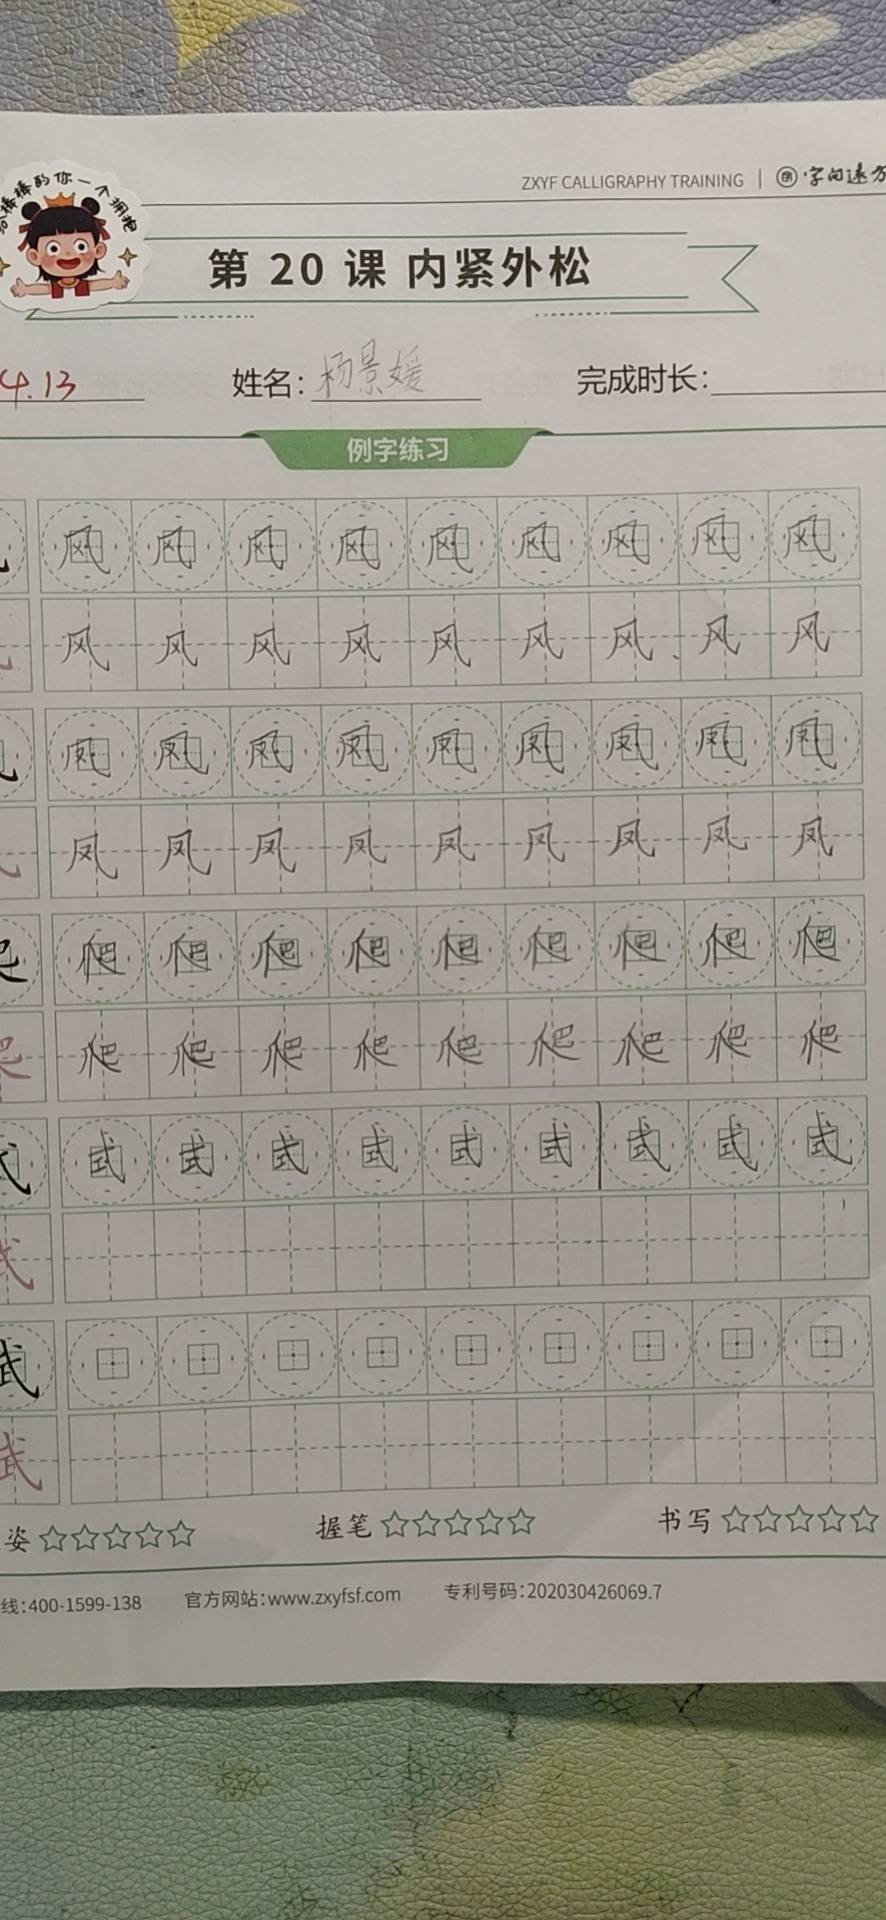 给棒棒的你一个拥抱
ZXYF CALLIGRAPHY TRAINING | 字向远方
第 20 课 内紧外松
4.13 姓名：杨景媛 完成时长：
例字练习
风 风 风 风 风 风 风 风 风
风 风 风 风 风 风 风 风 风 风
凤 凤 凤 凤 凤 凤 凤 凤 凤
凤 凤 凤 凤 凤 凤 凤 凤 凤
爬 爬 爬 爬 爬 爬 爬 爬 爬 爬
爬 爬 爬 爬 爬 爬 爬 爬 爬 爬
式 式 式 式 式 式 式 式 式 式
式
武
武
姿 ☆☆☆☆☆ 握笔 ☆☆☆☆☆ 书写 ☆☆☆☆☆
线：400-1599-138 官方网站：www.zxyfsf.com 专利号码：202030426069.7